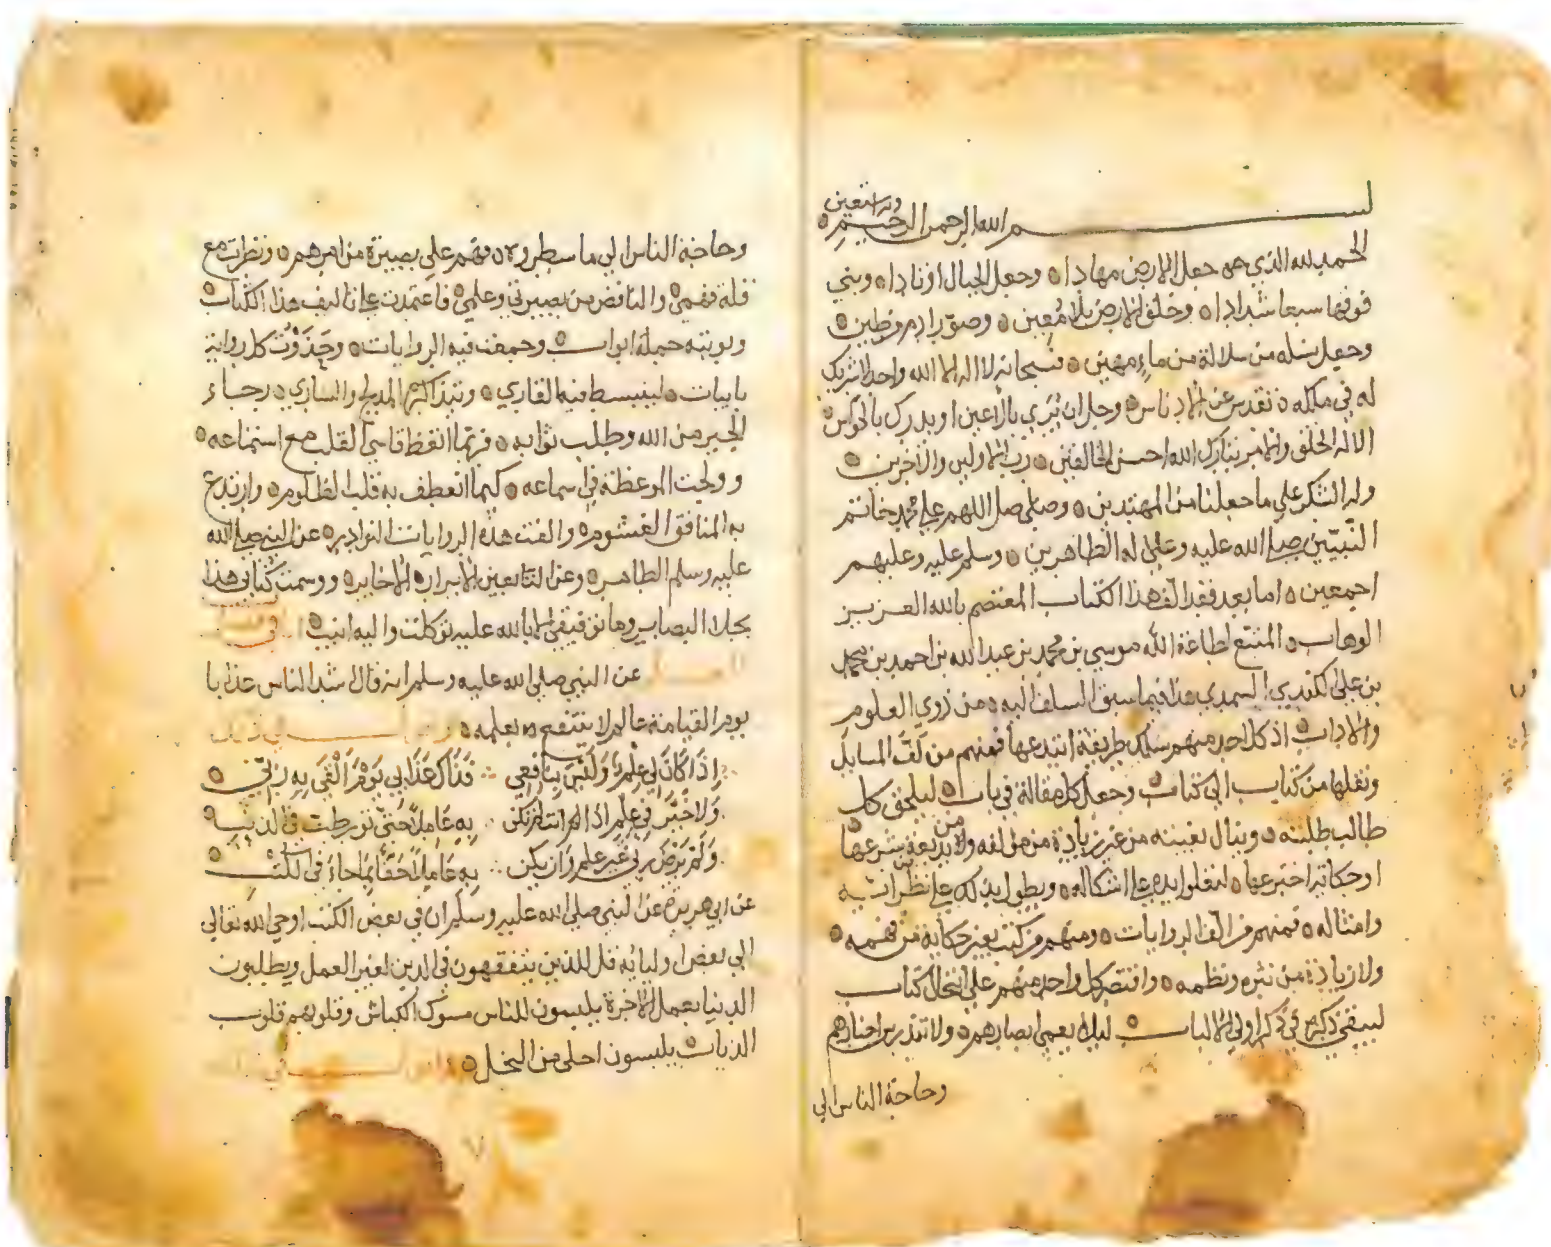 بسم الله الرحمن الرحيم وبه نستعين
الحمد لله الذي جعل الارض مهادا وجعل الجبال اوتادا وبني
فوقها سبعا شدادا وخلق الارض بلا معين وصور ادم من طين
وجعل نسله من سلالة من ماء مهين فسبحانه لا اله الا الله واحد لا شريك
له في ملكه تقدس عن الادناس وجل ان يرى بالاعين او يدرك بالحواس
الا له الخلق والامر تبارك الله احسن الخالقين رب الاولين والاخرين
وله الشكر علي ما جعلنا من المهتدين وصلي صل اللهم علي محمد خاتم
النبيين صلى الله عليه وعلى اله الطاهرين وسلم عليه وعليهم
اجمعين اما بعد فقد الف هذا الكتاب المعتصم بالله العزيز
الوهاب المتبع لطاعة الله موسي بن محمد بن عبد الله بن احمد بن محمد
بن علي الكندي السمدي هذا فيما سبق السلف اليه من ذوي العلوم
والاداب اذ كل احد منهم سلك طريقة ابتدعها فمنهم من لقف المسايل
ونقلها من كتاب الى كتاب وجعل كل مقالة في باب ليلحق كل
طالب طلبته وينال بغيته من غير زيادة من مؤلفه ولا من بديعة يشرعها
او حكاية اخترعها
وامثاله فمنهم من الف الروايات ومنهم من كتب بغير حكاية من فهمه
ولا زيادة من نثره ونظمه واقتصر كل واحد منهم علي انتحال كتاب
ليبقى ذكره في ذكر اولي الالباب ليلا يعمي ابصارهم ولا تندرس اخبارهم
وحاجة الناس الي
وحاجة الناس الي ما سطروه فهم على بصيرة من امرهم ونظرت مع
قلة فهمي والناقص من بصيرتي وعلمي فاعتمدت علي تاليف هذا الكتاب
وبوبته جملة ابواب وجمعت فيه الروايات وحذوت كل رواية
بابيات لينبسط فيه القاري ويتذاكر المدلج والساري رجاء
الخير من الله وطلب ثوابه فربما اتعظ قاسي القلب مع استماعه
وولجت الموعظة في اسماعه كيما انعطف به قلب الظلوم وارتدع
به المنافق الغشوم والفت هذه الروايات النوادر عن النبي صلى الله
عليه وسلم الطاهر وعن التابعين الابرار الاخاير ووسمت كتابي هذا
بجلا البصاير وما توفيقي الا بالله عليه توكلت واليه انيب
عن النبي صلى الله عليه وسلم انه قال اشد الناس عذابا
يوم القيامة عالم لا ينتفع بعلمه
اذا كان لي علم وليس بنافعي فذاك عذابي يوم القي به ربي
ولا خير في علم اذا المرء لم يكن به عاملا حتي تورط في الذنب
ولم يرض ربي غير علم وان يكن به عاملا حقا بما جاء في الكتب
عن ابي هريرة عن النبي صلى الله عليه وسلم ان في بعض الكتب اوحي الله تعالي
الي بعض اوليائه قل للذين يتفقهون في الدين لغير العمل ويطلبون
الدنيا بعمل الاخرة يلبسون للناس مسوك الكباش وقلوبهم قلوب
الذياب يلبسون احلى من النحل